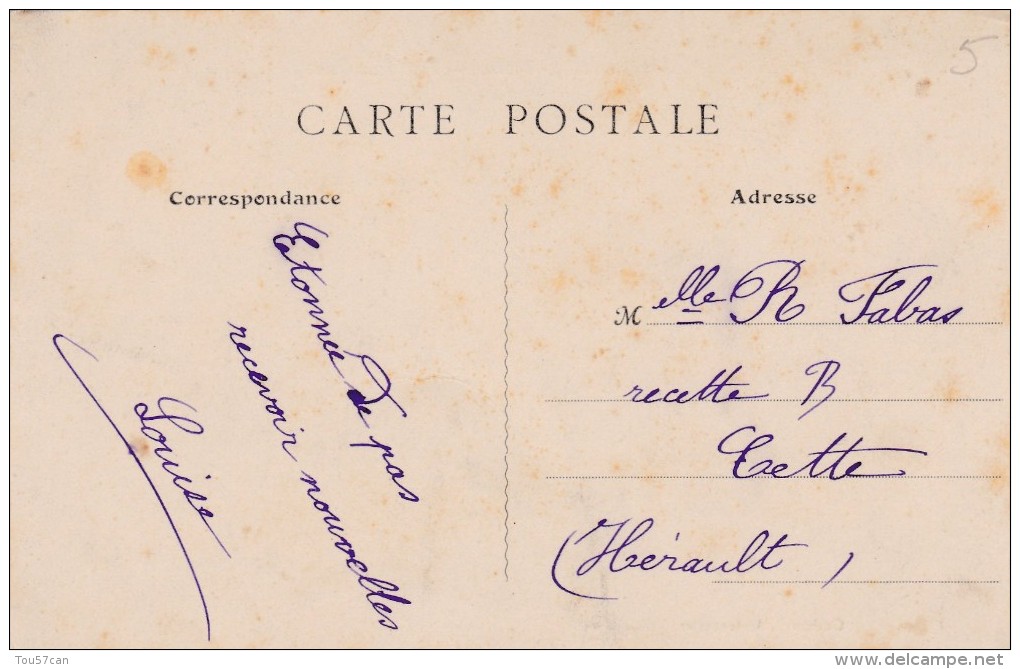 5
CARTE POSTALE
Correspondance
Etonnée de pas
recevoir nouvelles
Louise
Adresse
Melle R Fabas
recette B
Cette
(Hérault)
Tou57can
delcampe.net